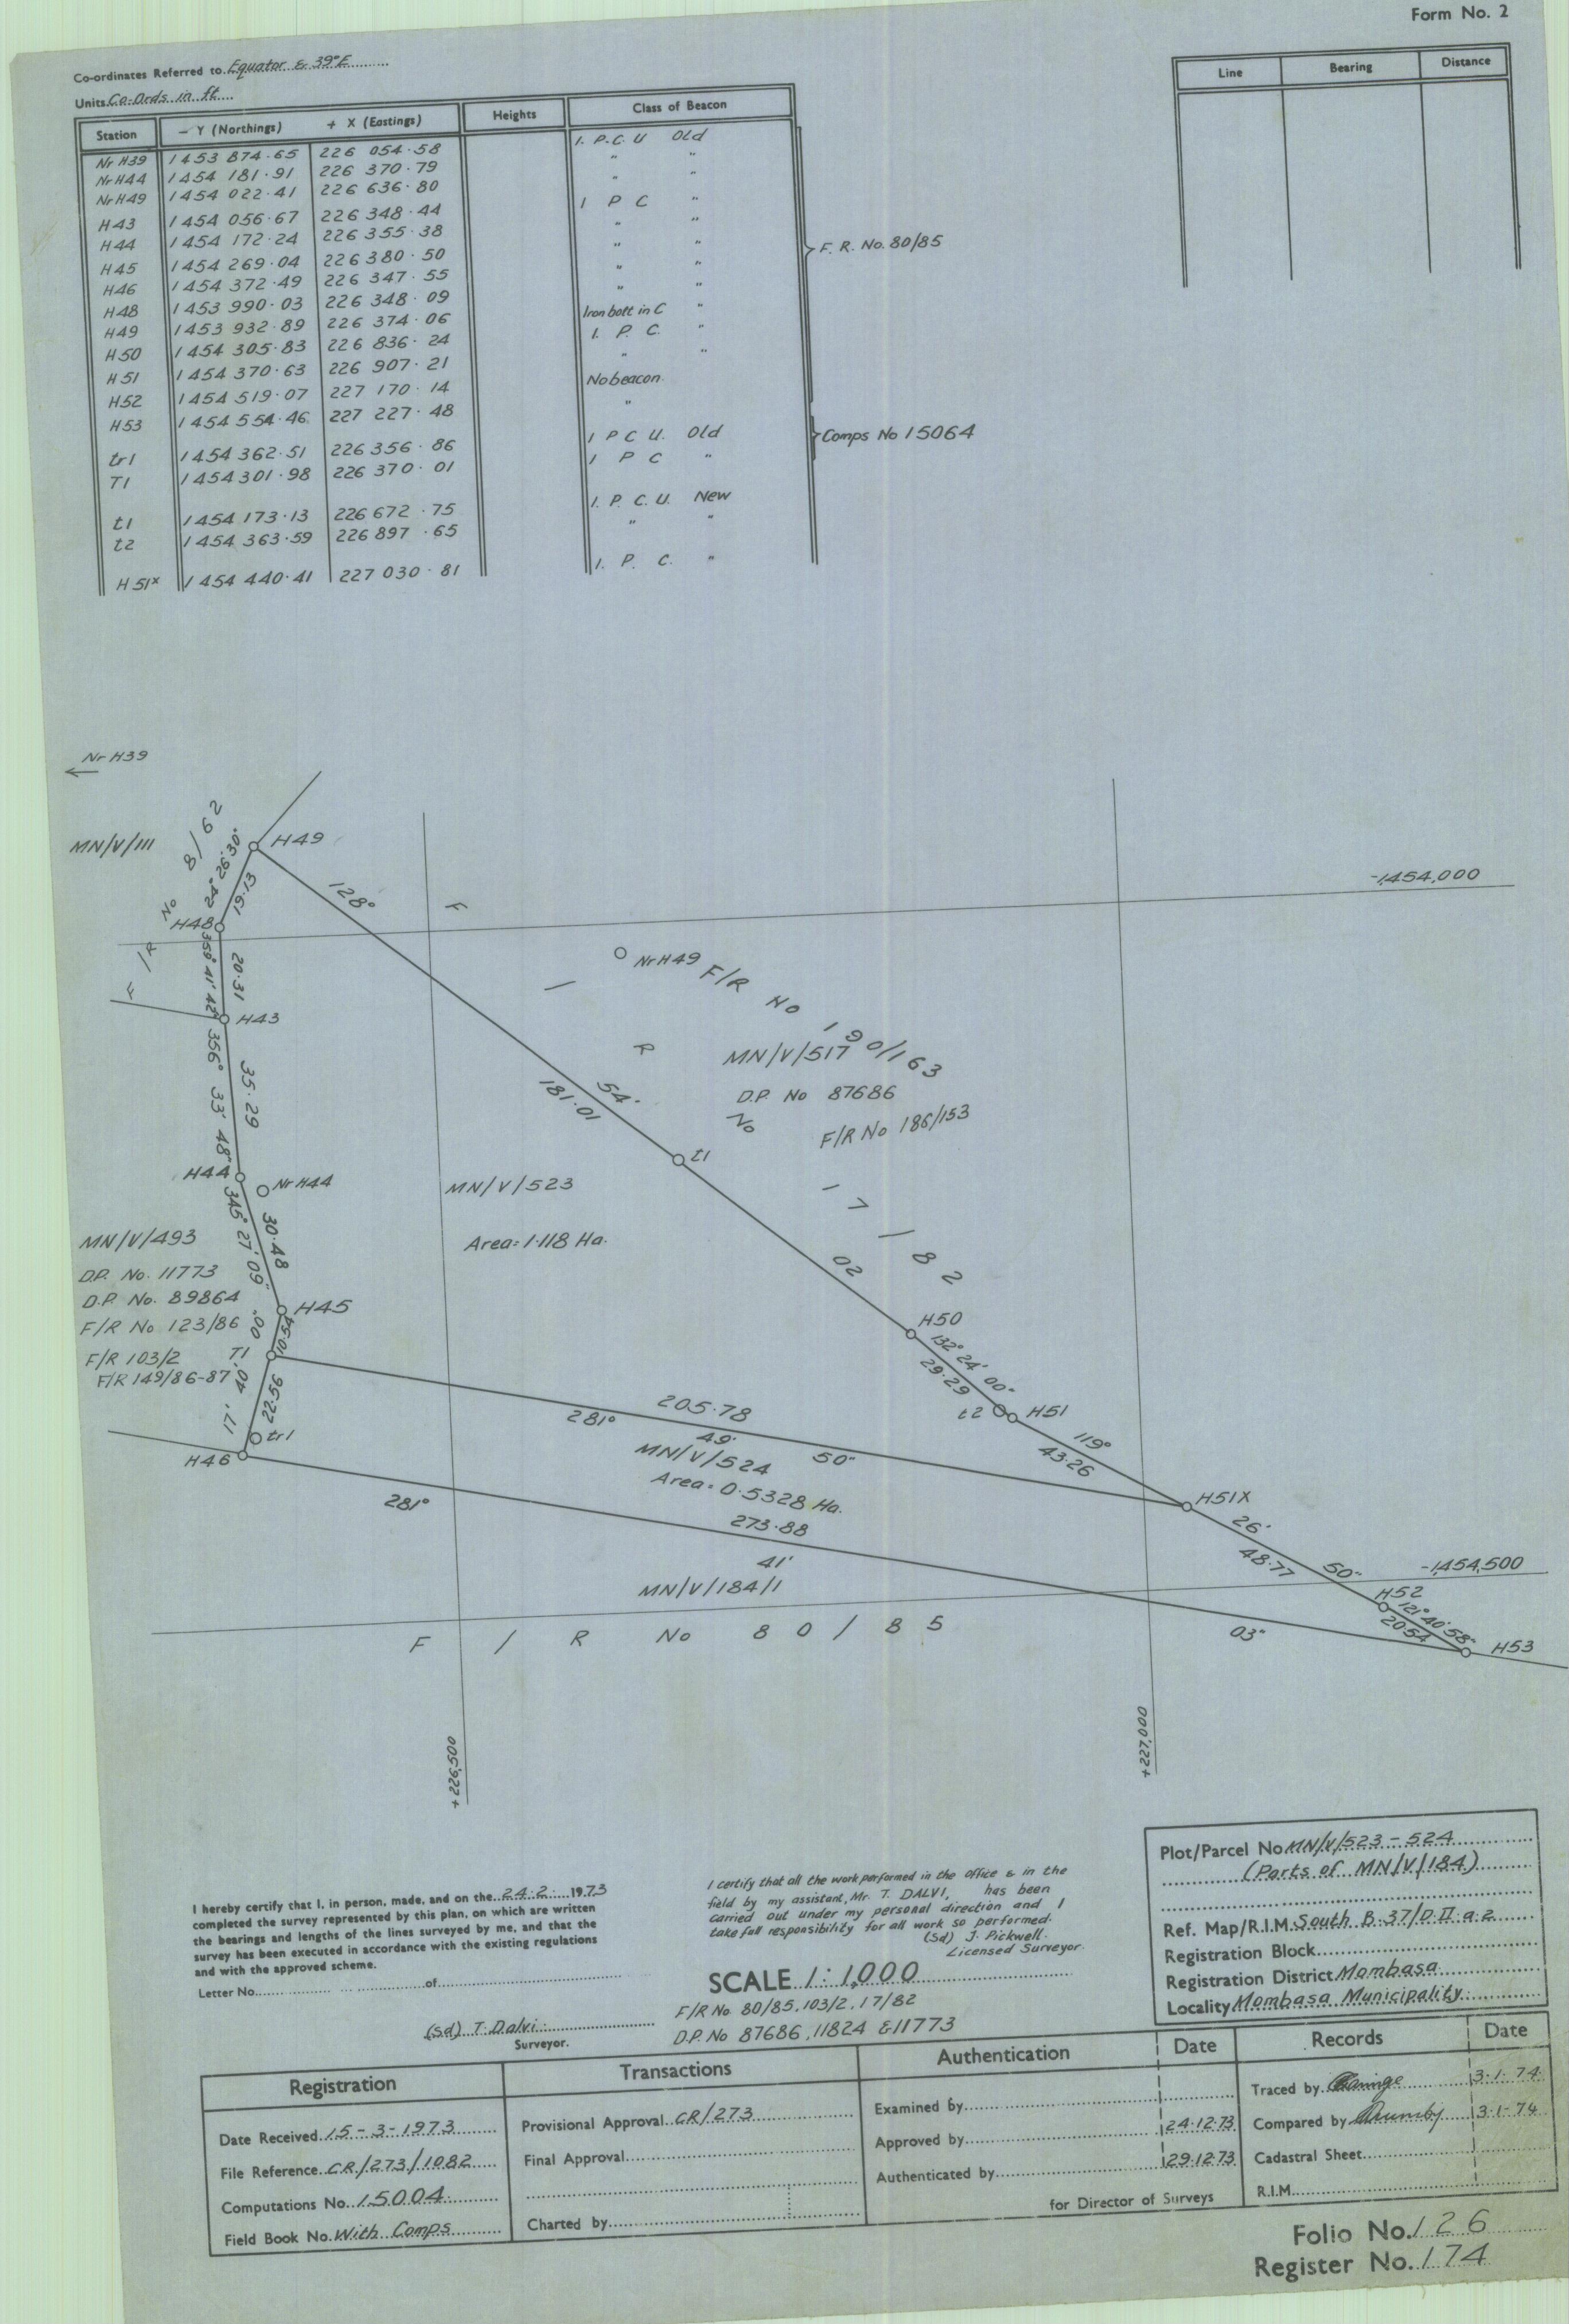 Form No. 2
Co-ordinates Referred to Equator & 39°E
Units Co-Ords in ft
Station - Y (Northings) + X (Eastings) Heights Class of Beacon
Nr H39 1453 874.65 226 054.58 I. P.C. U Old
Nr H44 1454 181.91 226 370.79 " "
Nr H49 1454 022.41 226 636.80 " "
H43 1454 056.67 226 348.44 I P C "
H44 1454 172.24 226 355.38 " "
H45 1454 269.04 226 380.50 " "
H46 1454 372.49 226 347.55 " "
H48 1453 990.03 226 348.09 " "
H49 1453 932.89 226 374.06 Iron bolt in C "
H50 1454 305.83 226 836.24 I. P. C. "
H51 1454 370.63 226 907.21 " "
H52 1454 519.07 227 170.14 No beacon.
H53 1454 554.46 227 227.48 "
tr1 1454 362.51 226 356.86 I P C U. Old
T1 1454 301.98 226 370.01 I P C "
t1 1454 173.13 226 672.75 I. P. C. U. New
t2 1454 363.59 226 897.65 " "
H51x 1454 440.41 227 030.81 I. P. C. "
F. R. No. 80/85
Comps No 15064
Line Bearing Distance
Nr H39
MN/V/111
F/R No 8/62
H49
24° 26' 30"
19.13
H48
359° 41' 42"
20.31
H43
356° 33' 48"
35.29
H44
Nr H44
345° 27' 09"
30.48
H45
10.54
T1
17' 40' 00"
22.56
tr1
H46
128° 54' 02
181.01
-1,454,000
Nr H49
F/R No 190/163
F/R No 17/82
MN/V/517
D.P. No 87686
F/R No 186/153
t1
MN/V/523
Area: 1.118 Ha.
MN/V/493
D.P. No. 11773
D.P. No. 89864
F/R No 123/86
F/R 103/2
F/R 149/86-87
H50
132° 24' 00"
29.29
t2
H51
119° 26' 50"
43.26
H51X
48.77
205.78
281° 49' 50"
MN/V/524
Area: 0.5328 Ha.
273.88
281° 41' 03"
MN/V/184/1
-1,454,500
H52
121° 40' 58"
20.54
H53
F/R No 80/85
+226,500
+227,000
I hereby certify that I, in person, made, and on the 24.2. 1973
completed the survey represented by this plan, on which are written
the bearings and lengths of the lines surveyed by me, and that the
survey has been executed in accordance with the existing regulations
and with the approved scheme.
Letter No. of
(Sd) T. Dalvi.
Surveyor.
I certify that all the work performed in the office & in the
field by my assistant, Mr. T. DALVI, has been
carried out under my personal direction and I
take full responsibility for all work so performed.
(Sd) J. Pickwell.
Licensed Surveyor.
SCALE 1:1,000
F/R No. 80/85, 103/2, 17/82
D.P. No 87686, 11824 & 11773
Plot/Parcel No MN/V/523-524
(Parts of MN/V/184)
Ref. Map/R.I.M. South B.37/D.II.a.2
Registration Block
Registration District Mombasa
Locality Mombasa Municipality.
Registration Transactions Authentication Date Records Date
Date Received 15-3-1973
File Reference CR/273/1082
Computations No. 15004
Field Book No. With Comps
Provisional Approval CR/273
Final Approval
Charted by
Examined by
Approved by 24.12.73
Authenticated by 29.12.73
for Director of Surveys
Traced by 3.1.74
Compared by 3.1.74
Cadastral Sheet
R.I.M.
Folio No. 126
Register No. 174